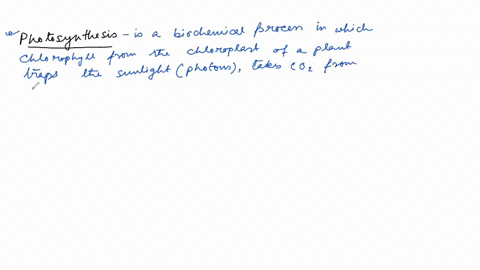 Photosynthesis - is a biochemical process in which
chlorophyll from the chloroplast of a plant
traps the sunlight (photons), takes CO2 from